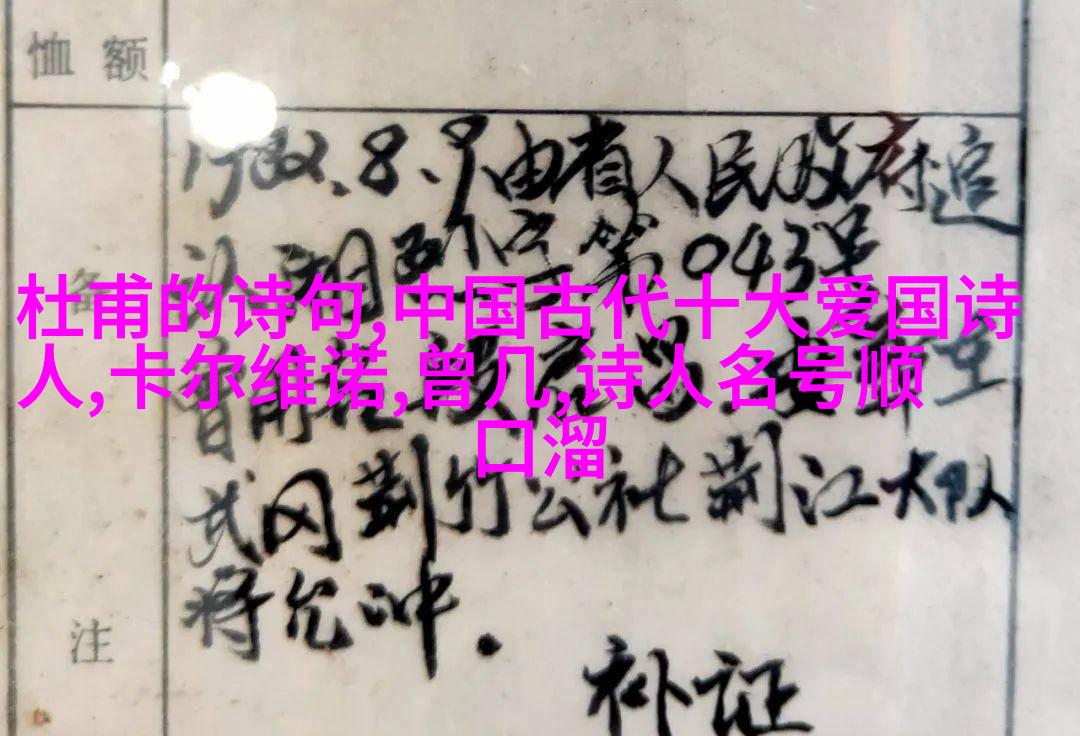 恤额
1982.8.9由省人民政府追
认,湘政优字第043号
备
杜甫的诗句,中国古代十大爱国诗
人,卡尔维诺,曾几,诗人名号顺
口溜
武冈荆竹公社荆江大队
蒋允冲.
注
补证